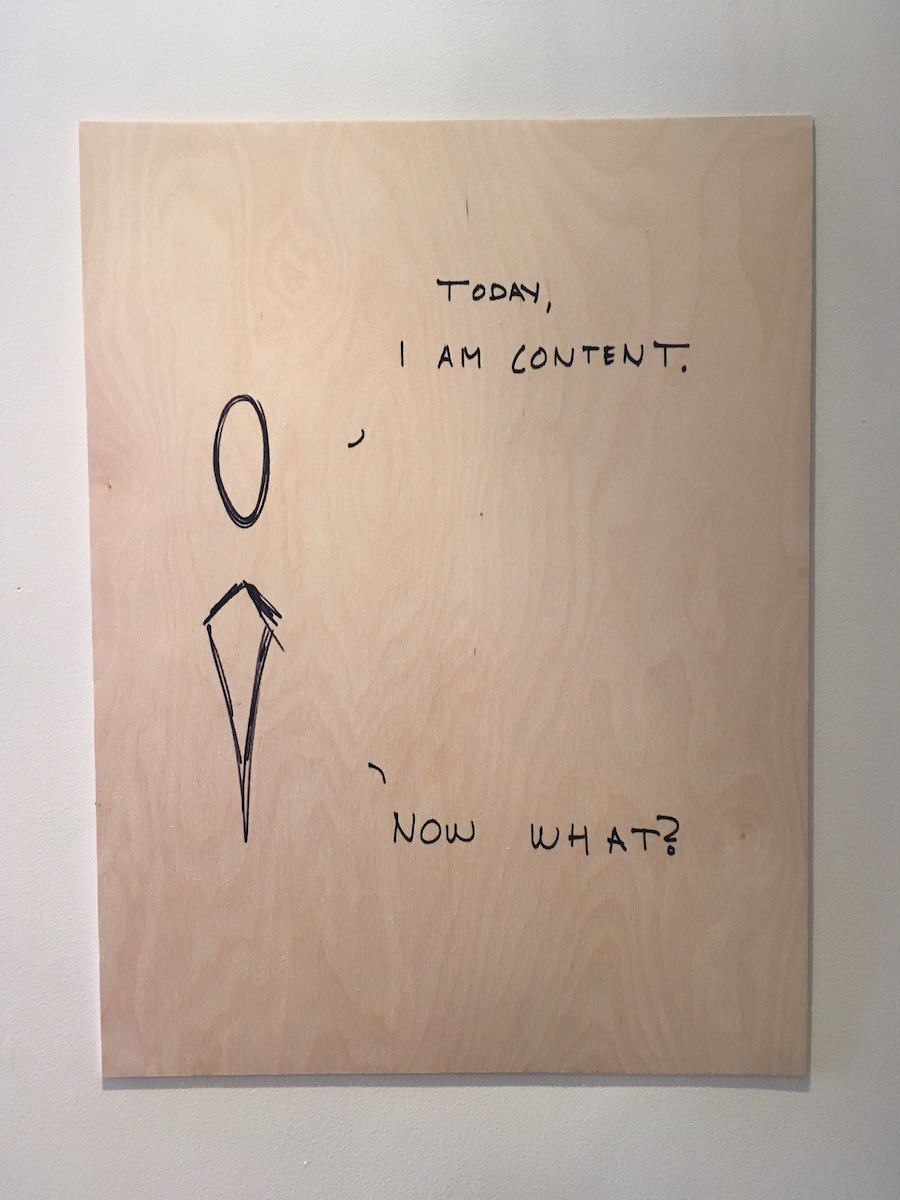 TODAY,
I AM CONTENT.
NOW WHAT?